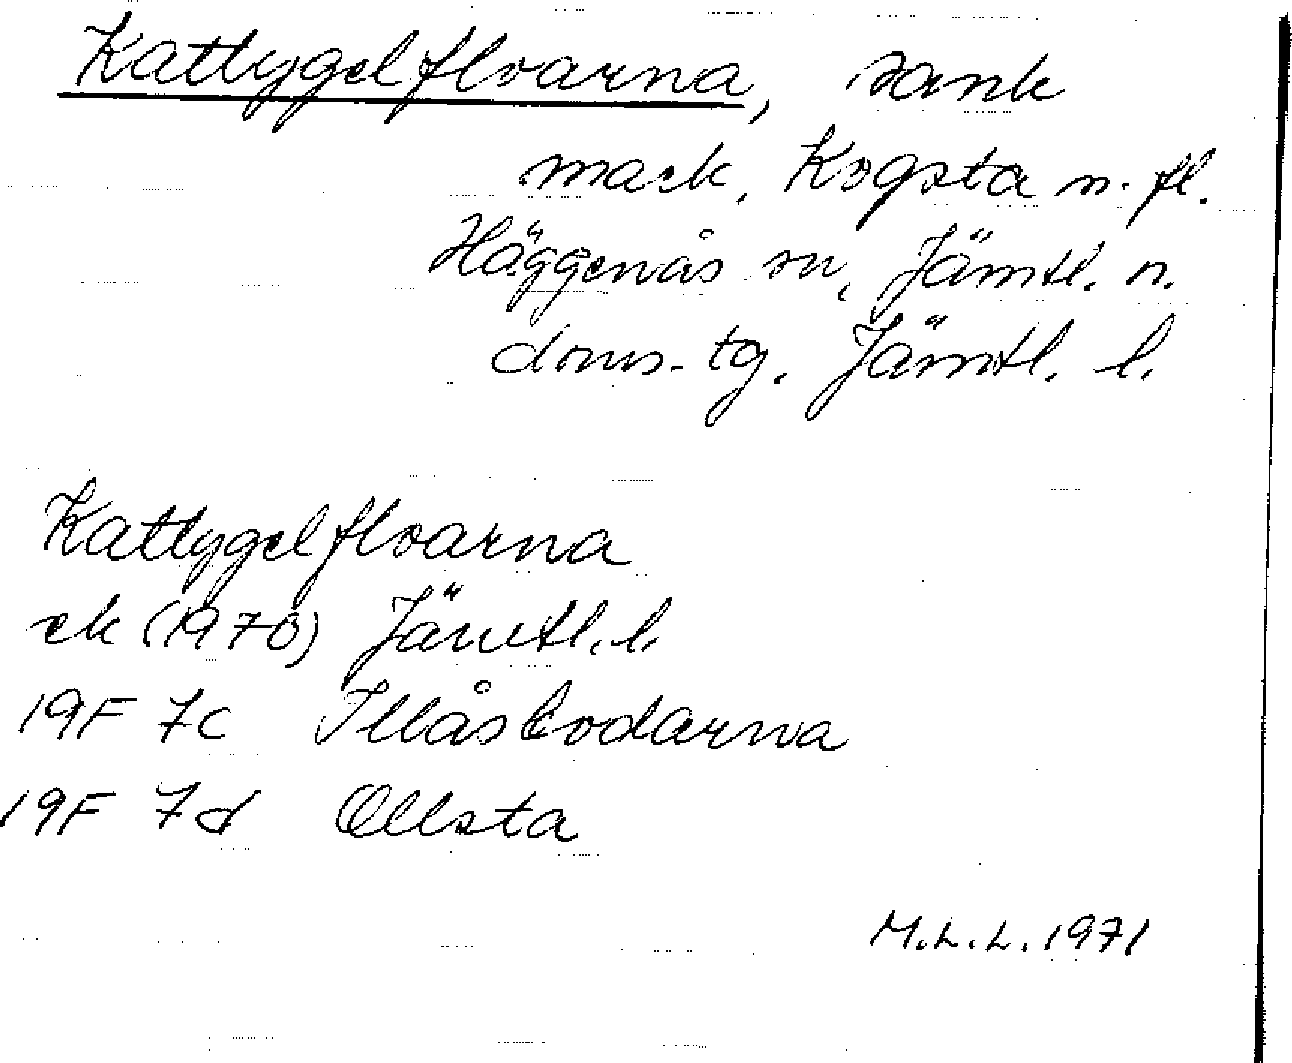 Kattygelfloarna, sank
mark, Kogsta m. fl.
Häggenås sn, Jämtl. n.
doms. tg. Jämtl. l.
Kattygelfloarna
ek (1970) Jämtl. l.
19F 7c Illåsbodarna
19F 7d Ollsta
M.L.L. 1971